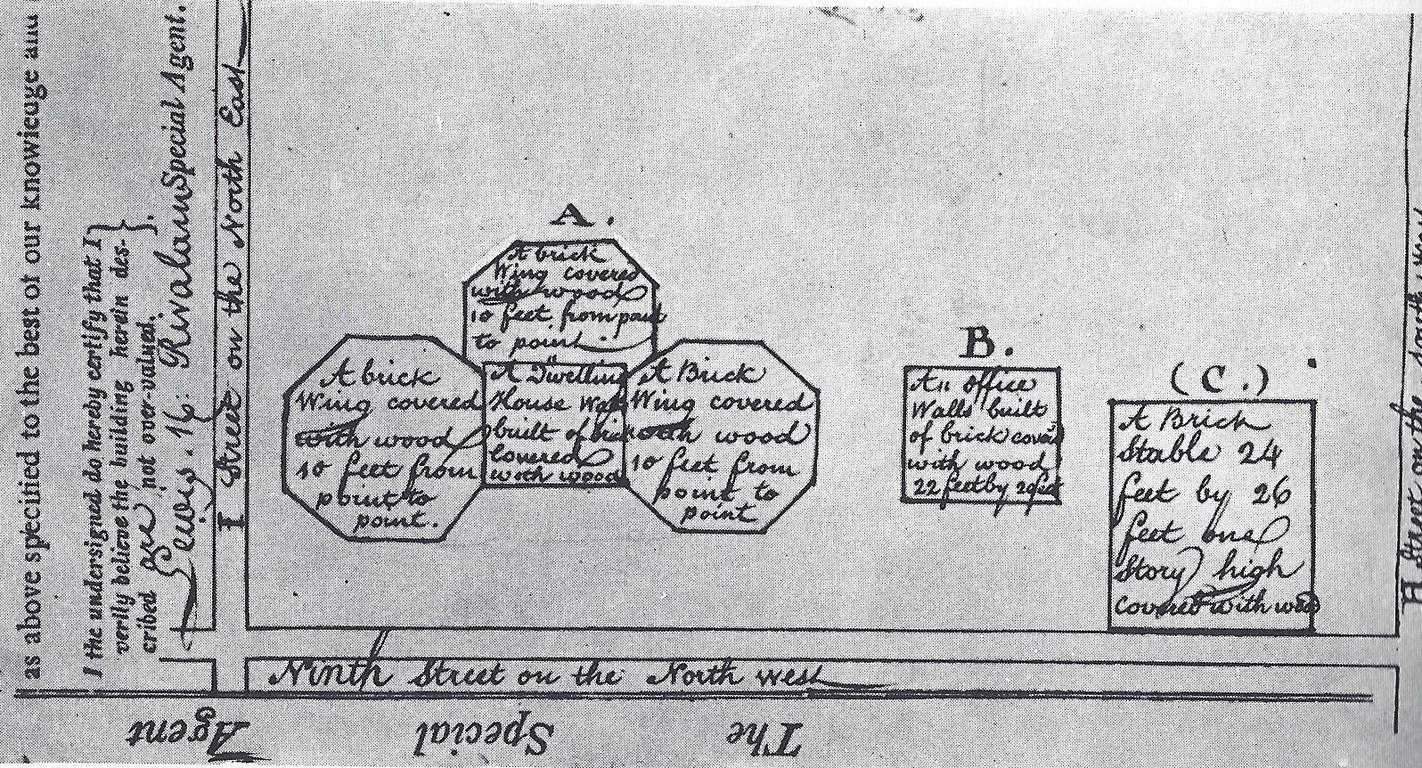 as above specified to the best of our knowledge and
I the undersigned do hereby certify that I
verily believe the building herein des-
cribed are not over-valued.
Special Agent.
I Street on the North East
A.
A brick
Wing covered
with wood
10 feet from point
to point
A brick
Wing covered
with wood
10 feet from
point to
point.
A Dwelling
House Walls
built of brick
Covered
with wood
A Brick
Wing covered
with wood
10 feet from
point to
point
B.
An office
Walls built
of brick
with wood
22 feet by 20 feet
(C.)
A Brick
Stable 24
feet by 26
feet one
Story high
covered with wood
H Street on the
Ninth Street on the North west
The Special Agent